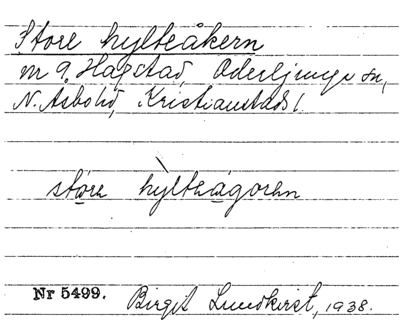 Store hylteåkern
nr 9. Hagstad, Oderljunga sn,
N. Åsbohd, Kristianstads l.
store hỳlteågoren
Nr 5499. Birgit Lundkvist, 1938.